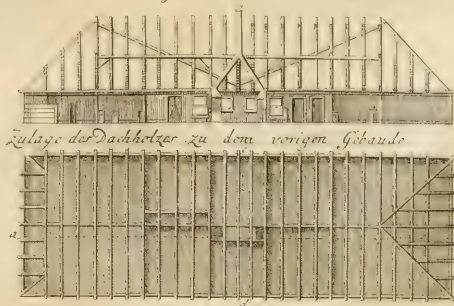 Zulage der Dachholzer zu dem vorigen Gebaude
a